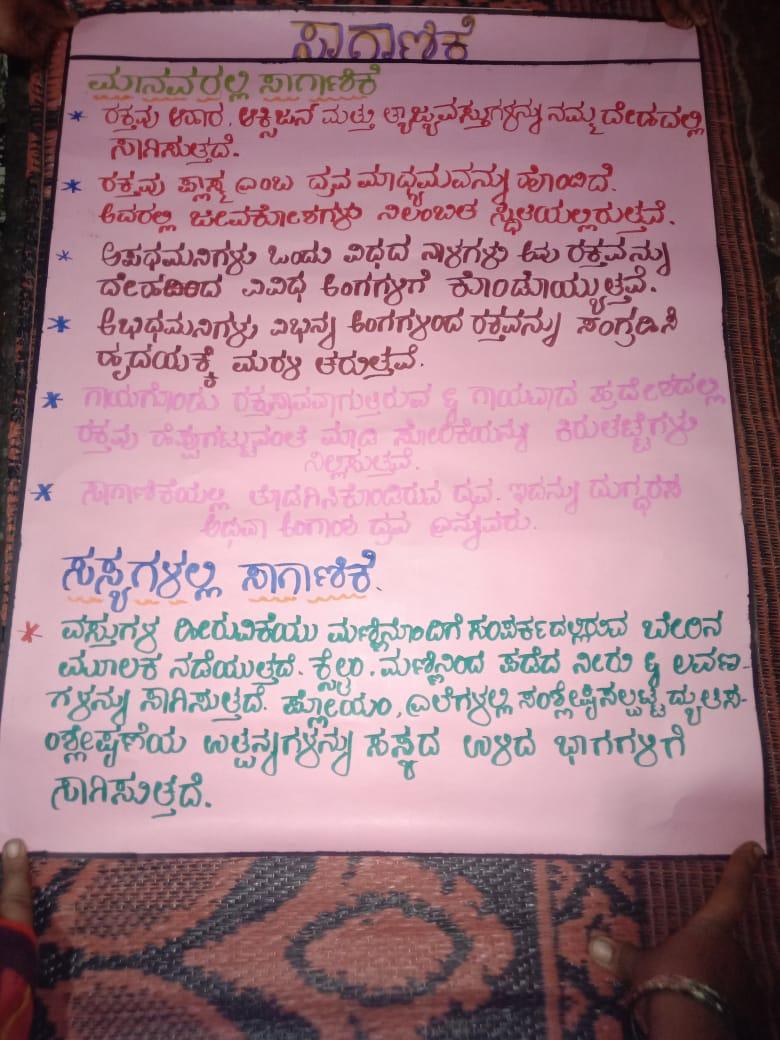 ಸಾಗಾಣಿಕೆ
ಮಾನವರಲ್ಲಿ ಸಾಗಾಣಿಕೆ
* ರಕ್ತವು ಆಹಾರ, ಆಕ್ಸಿಜನ್ ಮತ್ತು ತ್ಯಾಜ್ಯವಸ್ತುಗಳನ್ನು ನಮ್ಮ ದೇಹದಲ್ಲಿ
ಸಾಗಿಸುತ್ತದೆ.
* ರಕ್ತವು ಪ್ಲಾಸ್ಮ ಎಂಬ ದ್ರವ ಮಾಧ್ಯಮವನ್ನು ಹೊಂದಿದೆ.
ಅದರಲ್ಲಿ ಜೀವಕೋಶಗಳು ನಿಲಂಬಿತ ಸ್ಥಿತಿಯಲ್ಲಿರುತ್ತವೆ.
* ಅಪಧಮನಿಗಳು ಒಂದು ವಿಧದ ನಾಳಗಳು ಅವು ರಕ್ತವನ್ನು
ದೇಹದಿಂದ ವಿವಿಧ ಅಂಗಗಳಿಗೆ ಕೊಂಡೊಯ್ಯುತ್ತವೆ.
* ಅಭಿಧಮನಿಗಳು ವಿಭಿನ್ನ ಅಂಗಗಳಿಂದ ರಕ್ತವನ್ನು ಸಂಗ್ರಹಿಸಿ
ಹೃದಯಕ್ಕೆ ಮರಳಿ ತರುತ್ತವೆ.
* ಗಾಯಗೊಂಡು ರಕ್ತಸ್ರಾವವಾಗುತ್ತಿರುವ & ಗಾಯವಾದ ಪ್ರದೇಶದಲ್ಲಿ
ರಕ್ತವು ಹೆಪ್ಪುಗಟ್ಟುವಂತೆ ಮಾಡಿ ಸೋರಿಕೆಯನ್ನು ಕಿರುತಟ್ಟೆಗಳು
ನಿಲ್ಲಿಸುತ್ತವೆ.
* ಸಾಗಾಣಿಕೆಯಲ್ಲಿ ತೊಡಗಿಸಿಕೊಂಡಿರುವ ದ್ರವ. ಇದನ್ನು ದುಗ್ಧರಸ
ಅಥವಾ ಅಂಗಾಂಶ ದ್ರವ ಎನ್ನುವರು.
ಸಸ್ಯಗಳಲ್ಲಿ ಸಾಗಾಣಿಕೆ.
* ವಸ್ತುಗಳ ಹೀರುವಿಕೆಯು ಮಣ್ಣಿನೊಂದಿಗೆ ಸಂಪರ್ಕದಲ್ಲಿರುವ ಬೇರಿನ
ಮೂಲಕ ನಡೆಯುತ್ತದೆ. ಕ್ಸೈಲಂ, ಮಣ್ಣಿನಿಂದ ಪಡೆದ ನೀರು & ಲವಣ-
ಗಳನ್ನು ಸಾಗಿಸುತ್ತದೆ. ಫ್ಲೋಯಂ, ಎಲೆಗಳಲ್ಲಿ ಸಂಶ್ಲೇಷಿಸಲ್ಪಟ್ಟ ದ್ಯುತಿಸ-
ಂಶ್ಲೇಷಣೆಯ ಉತ್ಪನ್ನಗಳನ್ನು ಸಸ್ಯದ ಉಳಿದ ಭಾಗಗಳಿಗೆ
ಸಾಗಿಸುತ್ತದೆ.